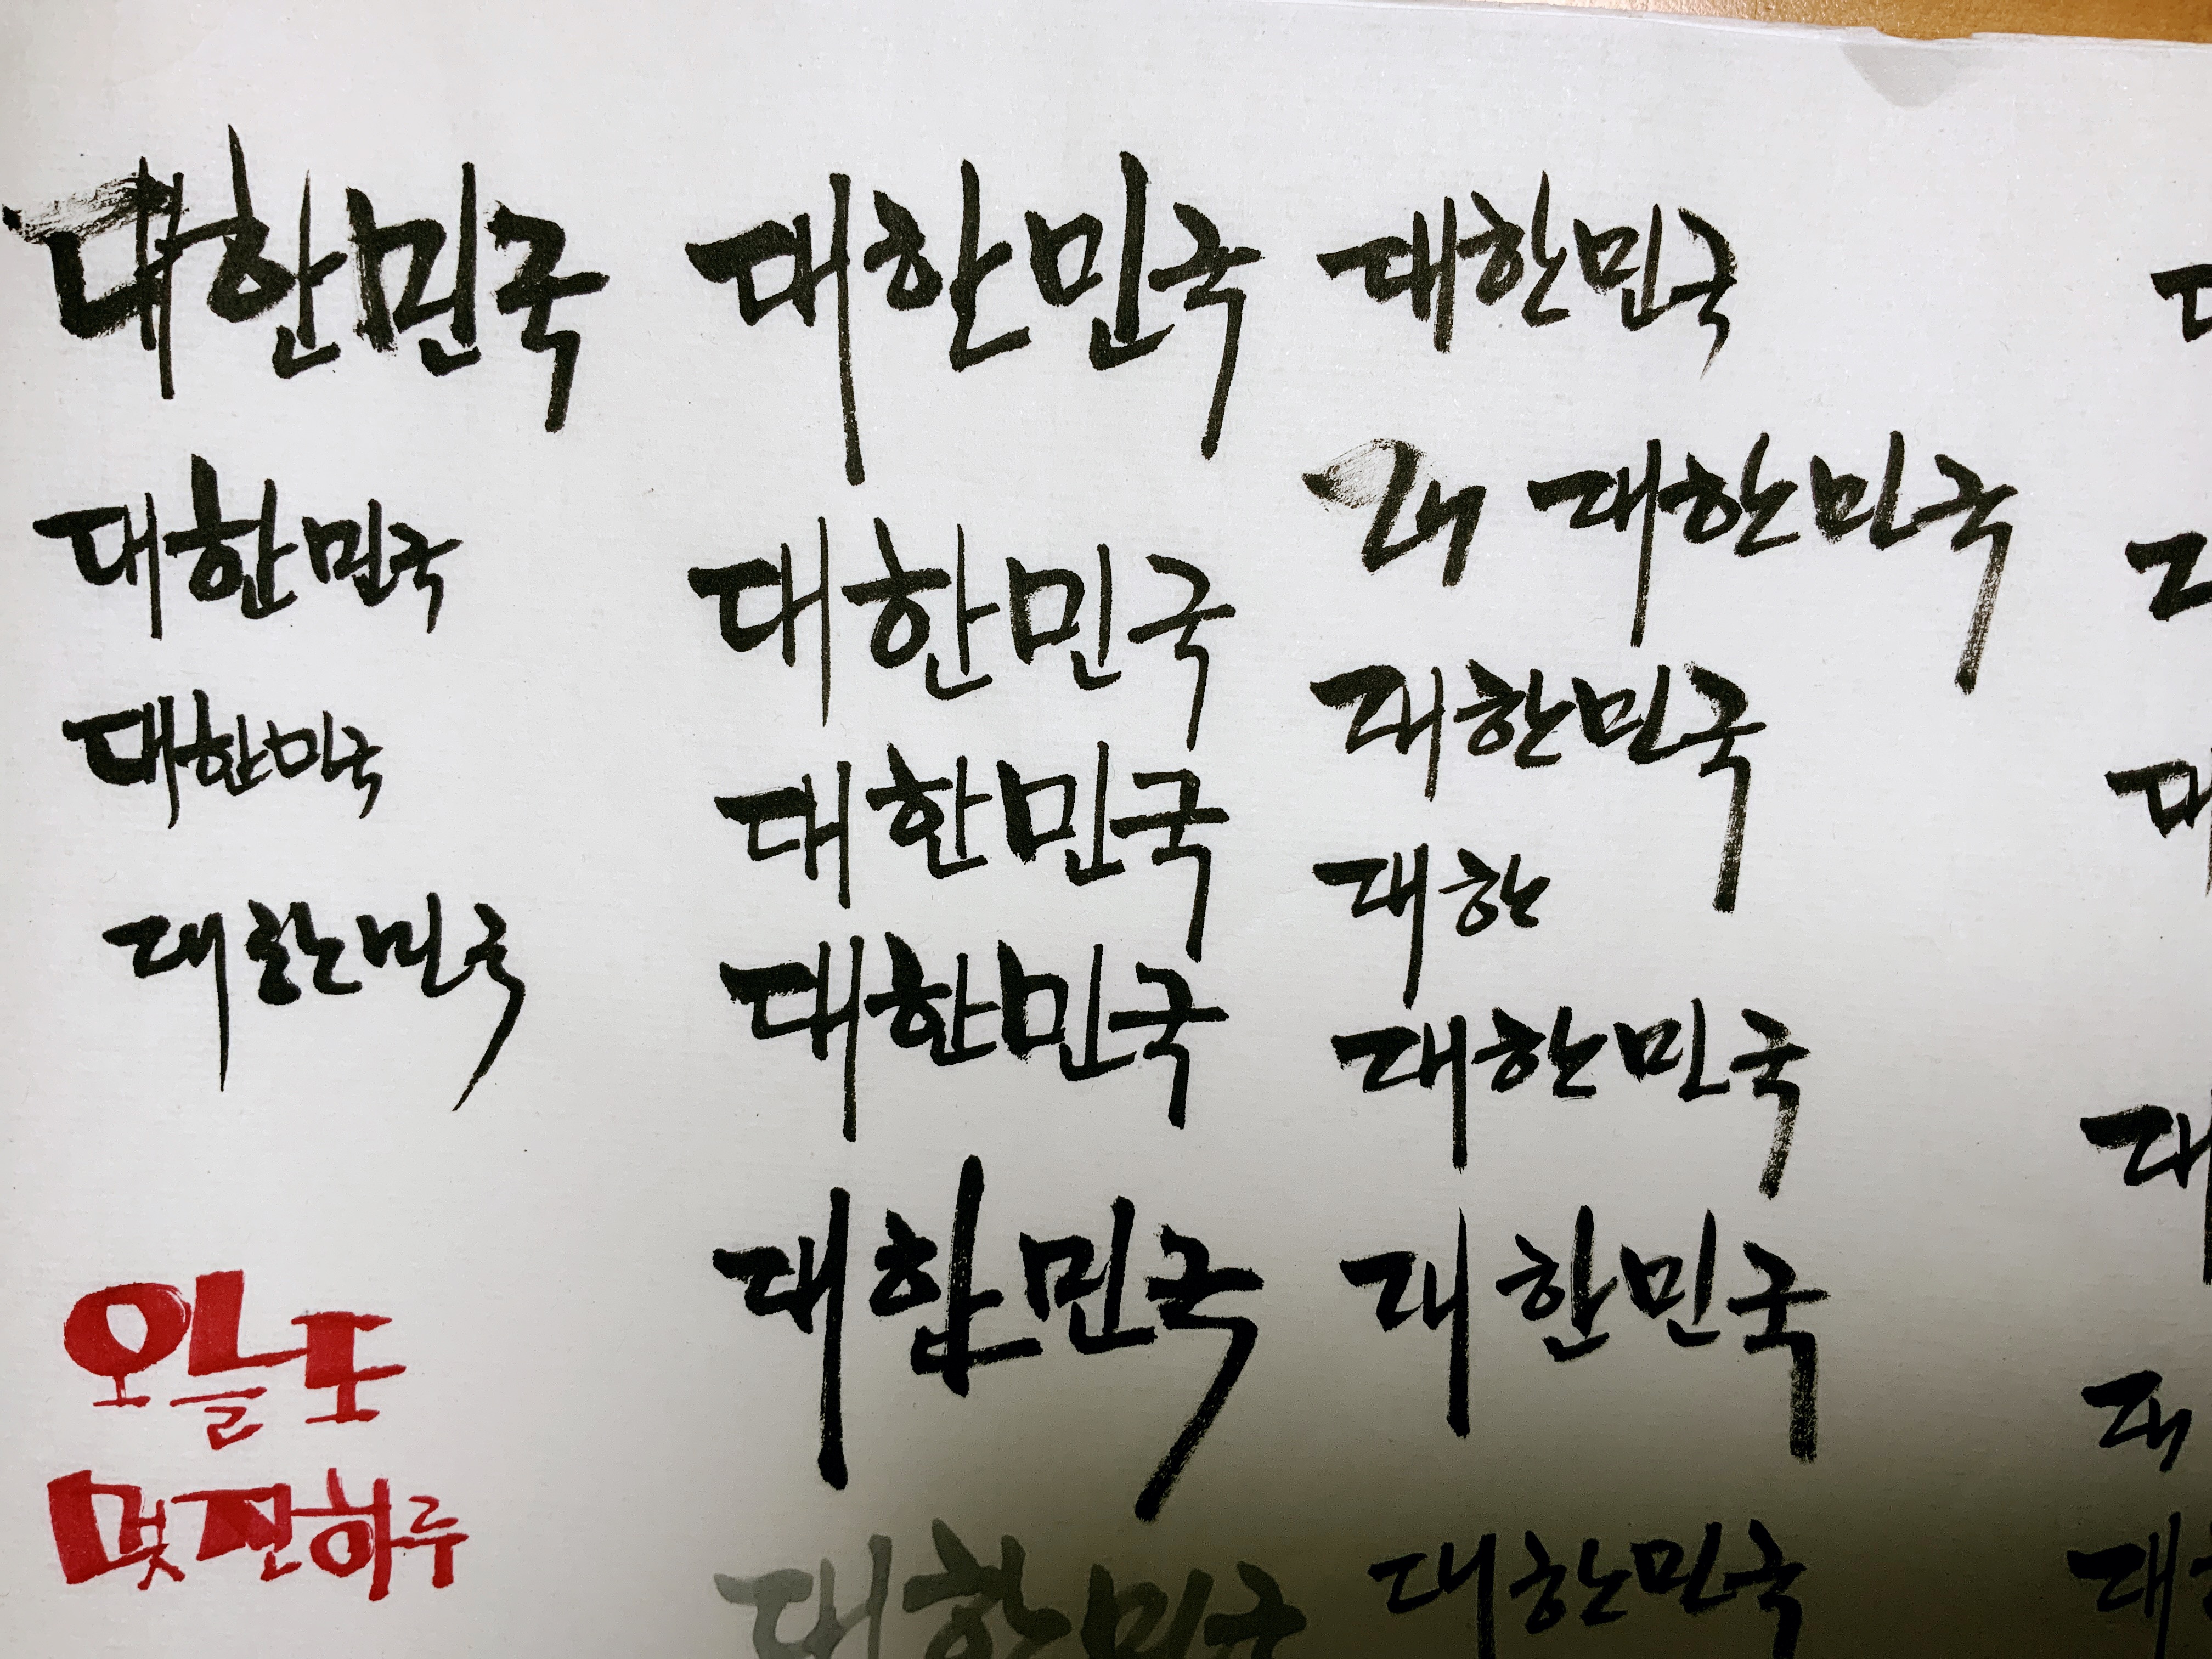 대한민국
대한민국
대한민국
대한민국
오늘도
멋진하루
대한민국
대한민국
대한민국
대한민국
대한민국
대한민국
대한민국
대 대한민국
대한민국
대한
대한민국
대한민국
대한민국
대
대
대